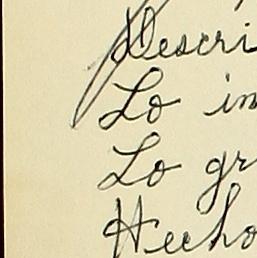 Descri
Lo im
Lo gr
Hecho